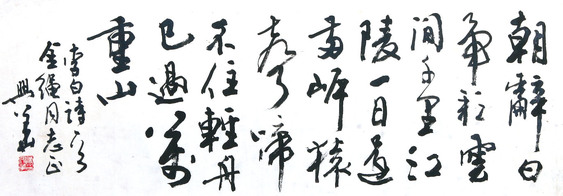 朝辭白
帝彩雲
間千里江
陵一日還
兩岸猿
聲啼
不住輕舟
已過萬
重山
李白詩一首
金繩同志正